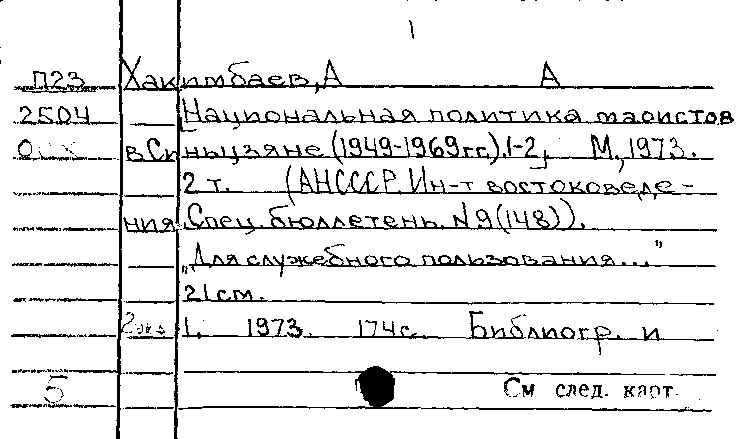 1
П23 Хакимбаев, А А
2504 Национальная политика маоистов
в Синьцзяне (1949-1969 гг.). 1-2, М., 1973.
2 т. (АН СССР. Ин-т востоковеде-
ния. Спец. бюллетень. N 9 (148)).
„Для служебного пользования..."
21 см.
2 экз 1. 1973. 174 с. Библиогр. и
5 См след. карт.